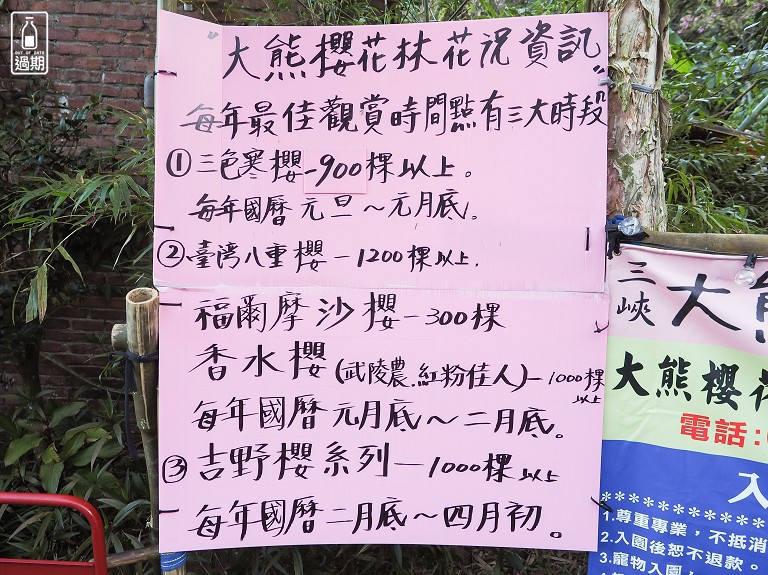 OUT OF DATE
過期
大熊櫻花林花況資訊
每年最佳觀賞時間點有三大時段
①三色寒櫻-900棵以上。
每年國曆元旦～元月底。
②臺灣八重櫻-1200棵以上.
福爾摩沙櫻-300棵
香水櫻(武陵農.紅粉佳人)-1000棵以上
每年國曆元月底～二月底。
③吉野櫻系列-1000棵以上
每年國曆二月底～四月初。
三峽大
大熊櫻
電話:
入
******************
1.尊重專業，不抵消
2.入園後恕不退款。
3.寵物入園